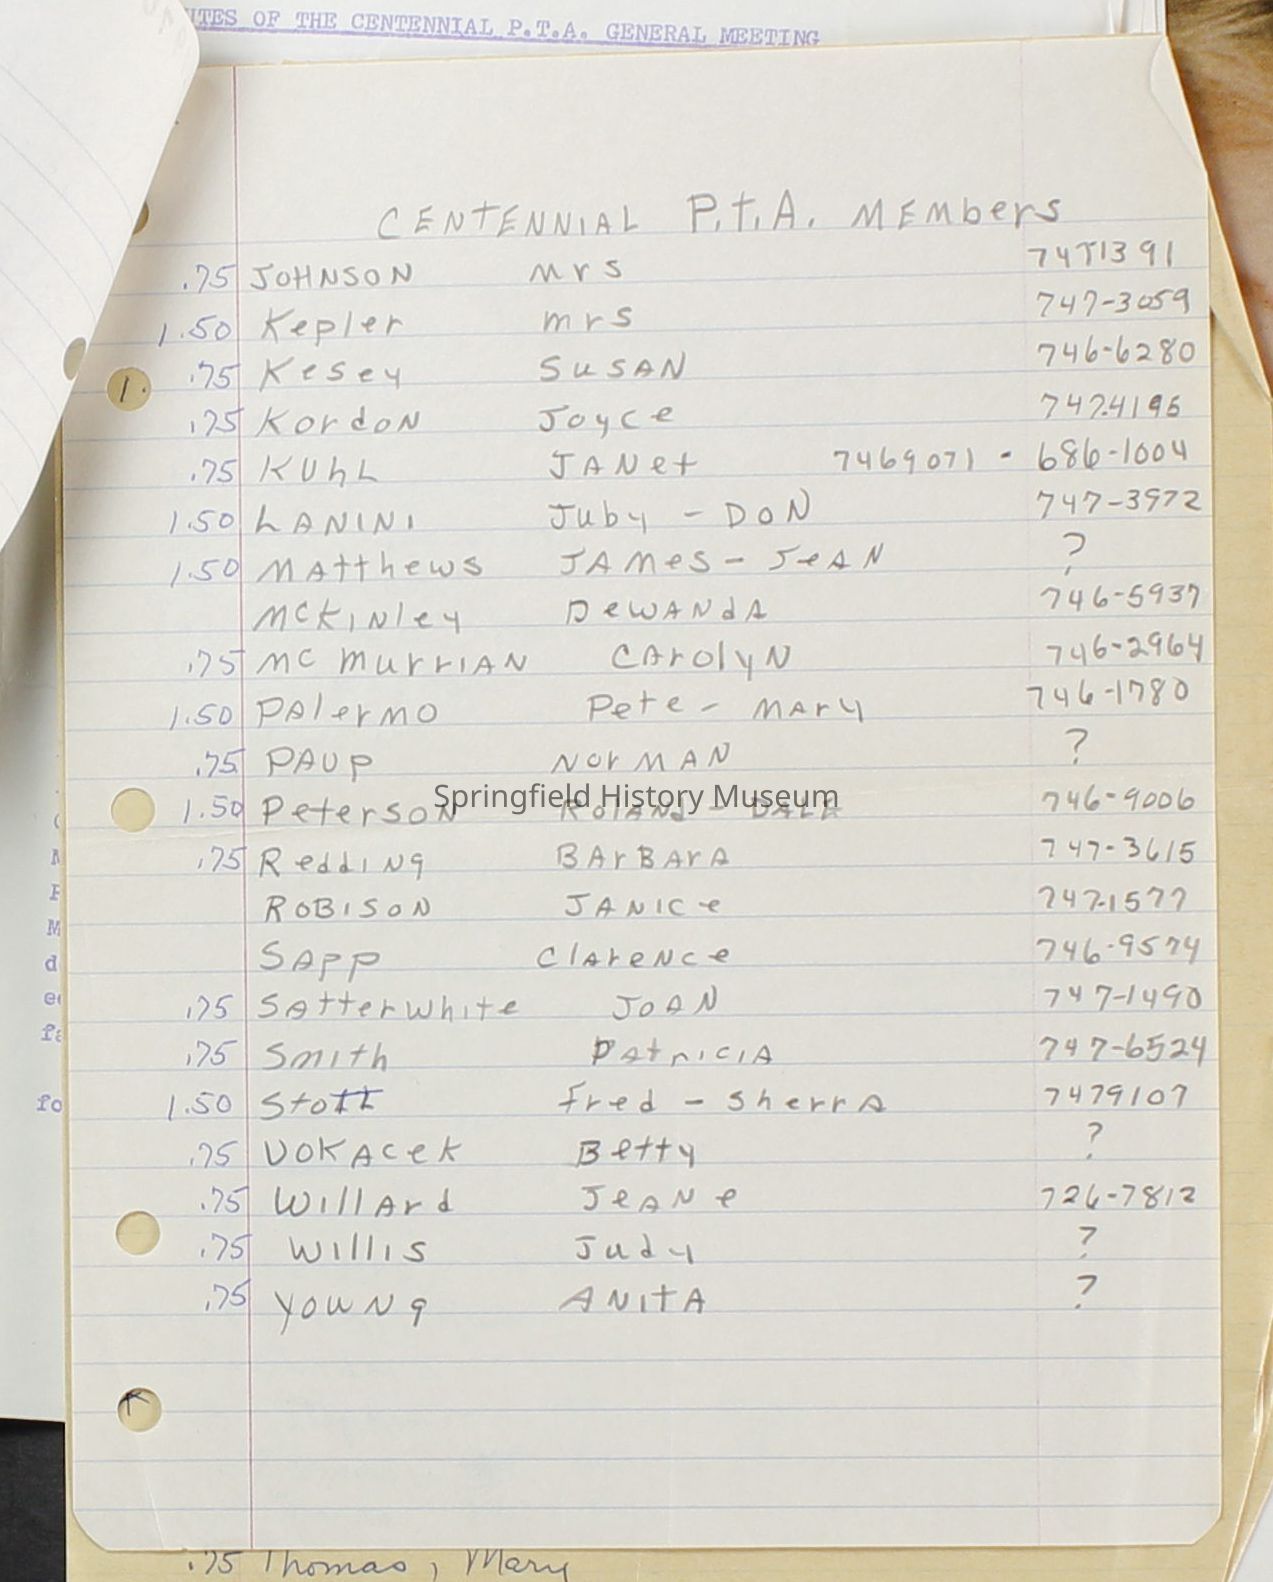 UTES OF THE CENTENNIAL P.T.A. GENERAL MEETING
CENTENNIAL P.T.A. MEMbers
.75 JOHNSON mrs 7471391
1.50 Kepler mrs 747-3059
.75 Kesey SuSAN 746-6280
.75 KordoN Joyce 747-4196
.75 KUhL JANet 7469071 - 686-1004
1.50 LANINI Juby - DoN 747-3972
1.50 MAtthews JAMes - JeAN ?
McKINley DeWANdA 746-5937
.75 Mc MurrIAN CArolyN 746-2964
1.50 PAlermo Pete - MAry 746-1780
.75 PAUp NorMAN ?
1.50 PetersoN RolANd - DALE 746-9006
Springfield History Museum
.75 ReddiNg BArBArA 747-3615
RoBISoN JANICe 747-1577
SApp ClAreNce 746-9574
.75 SAtterwhite JoAN 747-1490
.75 Smith PAtriciA 747-6524
1.50 Stott fred - SherrA 7479107
.75 VOKAceK Betty ?
.75 WillArd JeANe 726-7812
.75 Willis Judy ?
.75 YouNg ANItA ?
.75 Thomas, Mary